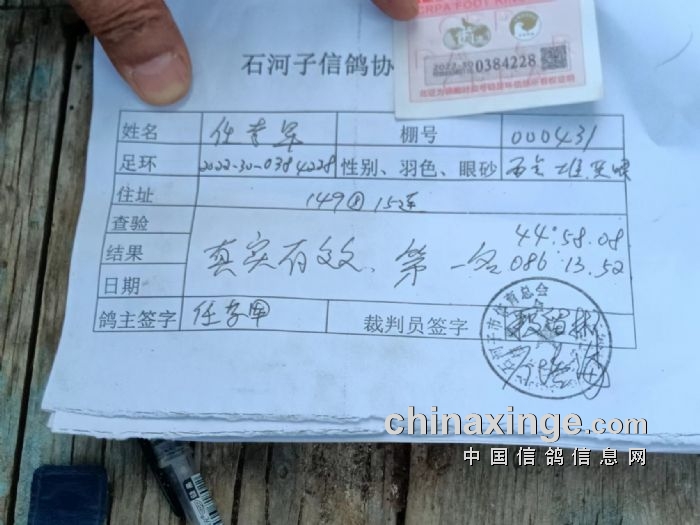 CRPA FOOT RING
2022-30 0384228
石河子信鸽协
姓名 任 军 棚号 000431
足环 2022-30-0384228 性别、羽色、眼砂 雄
住址 149团15连
查验 44°:58.08
结果 真实有效、第一名 086:13.52
日期
鸽主签字 任 军 裁判员签字
石河子市体育总会
chinaxinge.com
中国信鸽信息网